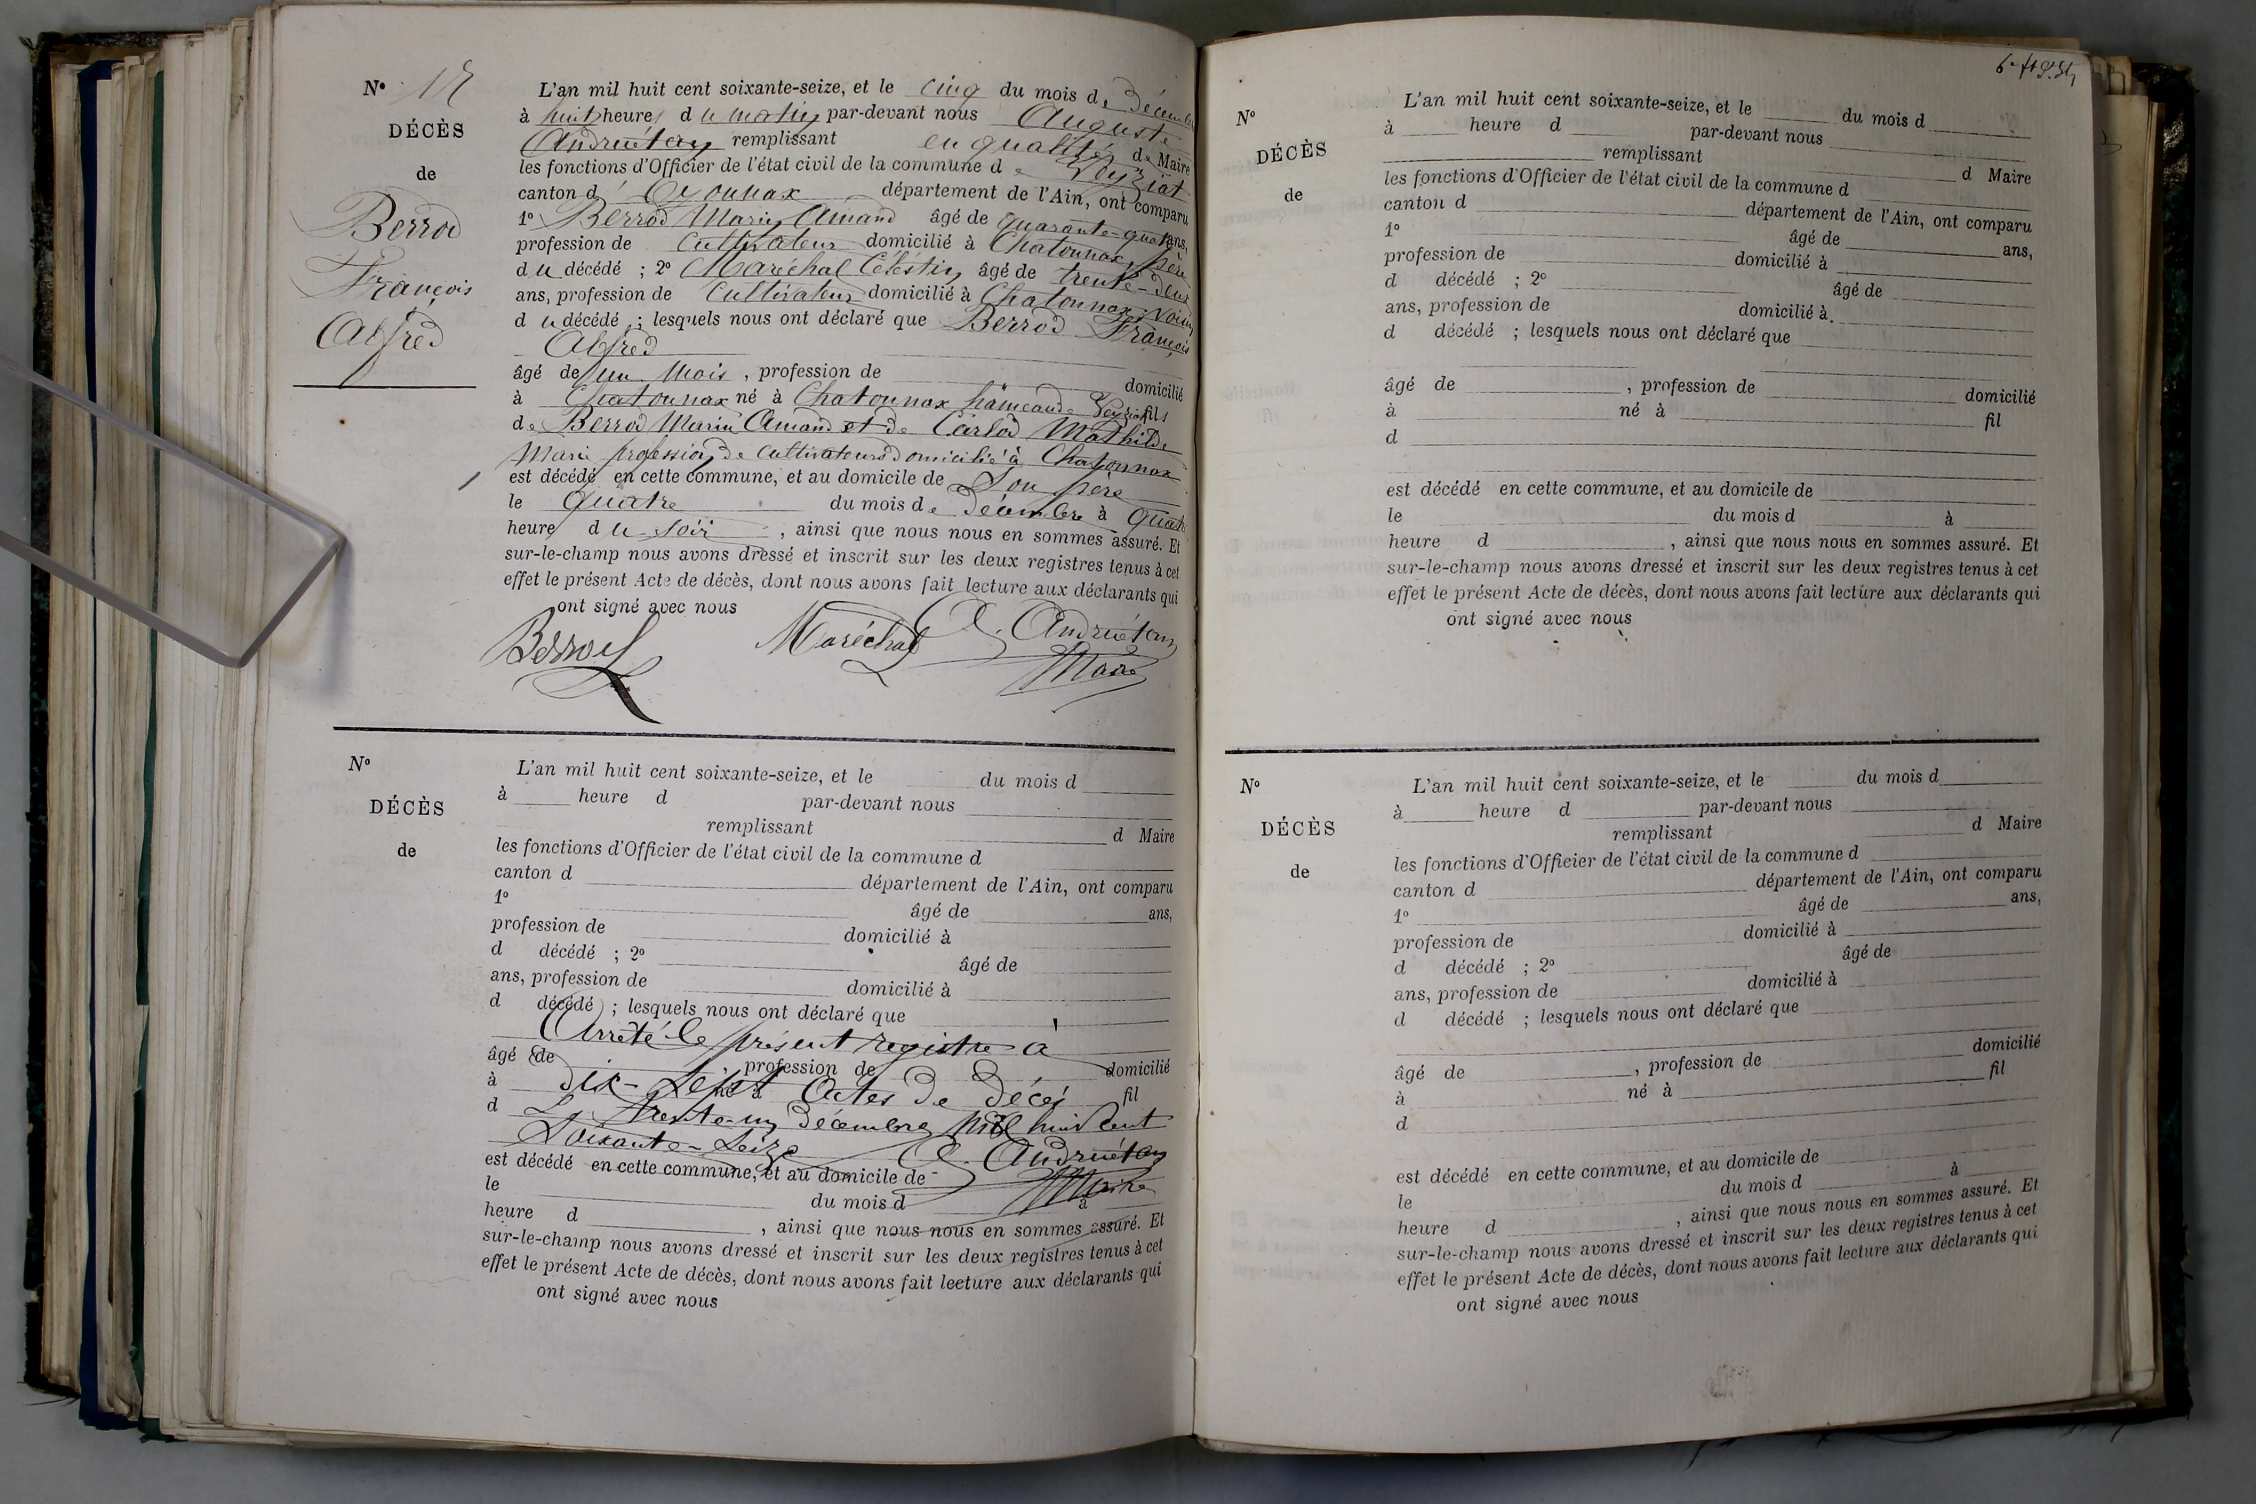 N° 17
DÉCÈS
de
Berrod
François
Alfred
L'an mil huit cent soixante-seize, et le cinq du mois de Décembre
à huit heures du matin par-devant nous Auguste
Andruétan remplissant en qualité de Maire
les fonctions d'Officier de l'état civil de la commune de Veyziat
canton d' Oyonnax département de l'Ain, ont comparu
1° Berrod Marie Amand âgé de quarante-quatre ans,
profession de Cultivateur domicilié à Chatonnax, père
du décédé ; 2° Maréchal Célestin âgé de trente-deux
ans, profession de Cultivateur domicilié à Chatonnax, voisin
du décédé ; lesquels nous ont déclaré que Berrod François
Alfred
âgé de un mois, profession de domicilié
à Chatonnax né à Chatonnax hameau de Veyziat fils
de Berrod Marie Amand et de Carlod Mathilde
Marie profession de cultivateurs domicilié à Chatonnax
est décédé en cette commune, et au domicile de Son père
le quatre du mois de Décembre à quatre
heure du soir, ainsi que nous nous en sommes assuré. Et
sur-le-champ nous avons dressé et inscrit sur les deux registres tenus à cet
effet le présent Acte de décès, dont nous avons fait lecture aux déclarants qui
ont signé avec nous
Berrod Maréchal A. Andruétan
Maire
N°
DÉCÈS
de
L'an mil huit cent soixante-seize, et le du mois d
à heure d par-devant nous
remplissant d Maire
les fonctions d'Officier de l'état civil de la commune d
canton d département de l'Ain, ont comparu
1° âgé de ans,
profession de domicilié à
d décédé ; 2° âgé de
ans, profession de domicilié à
d décédé ; lesquels nous ont déclaré que
Arrêté le présent registre à
âgé de profession de domicilié
à né à fil
dix-sept actes de décès
d
Le trente-un décembre mil huit cent
soixante-seize A. Andruétan
est décédé en cette commune, et au domicile de
Maire
le du mois d à
heure d , ainsi que nous nous en sommes assuré. Et
sur-le-champ nous avons dressé et inscrit sur les deux registres tenus à cet
effet le présent Acte de décès, dont nous avons fait lecture aux déclarants qui
ont signé avec nous
N°
DÉCÈS
de
L'an mil huit cent soixante-seize, et le du mois d
à heure d par-devant nous
remplissant d Maire
les fonctions d'Officier de l'état civil de la commune d
canton d département de l'Ain, ont comparu
1° âgé de ans,
profession de domicilié à
d décédé ; 2° âgé de
ans, profession de domicilié à
d décédé ; lesquels nous ont déclaré que
âgé de , profession de domicilié
à né à fil
d
est décédé en cette commune, et au domicile de
le du mois d à
heure d , ainsi que nous nous en sommes assuré. Et
sur-le-champ nous avons dressé et inscrit sur les deux registres tenus à cet
effet le présent Acte de décès, dont nous avons fait lecture aux déclarants qui
ont signé avec nous
N°
DÉCÈS
de
L'an mil huit cent soixante-seize, et le du mois d
à heure d par-devant nous
remplissant d Maire
les fonctions d'Officier de l'état civil de la commune d
canton d département de l'Ain, ont comparu
1° âgé de ans,
profession de domicilié à
d décédé ; 2° âgé de
ans, profession de domicilié à
d décédé ; lesquels nous ont déclaré que
âgé de , profession de domicilié
à né à fil
d
est décédé en cette commune, et au domicile de
le du mois d à
heure d , ainsi que nous nous en sommes assuré. Et
sur-le-champ nous avons dressé et inscrit sur les deux registres tenus à cet
effet le présent Acte de décès, dont nous avons fait lecture aux déclarants qui
ont signé avec nous